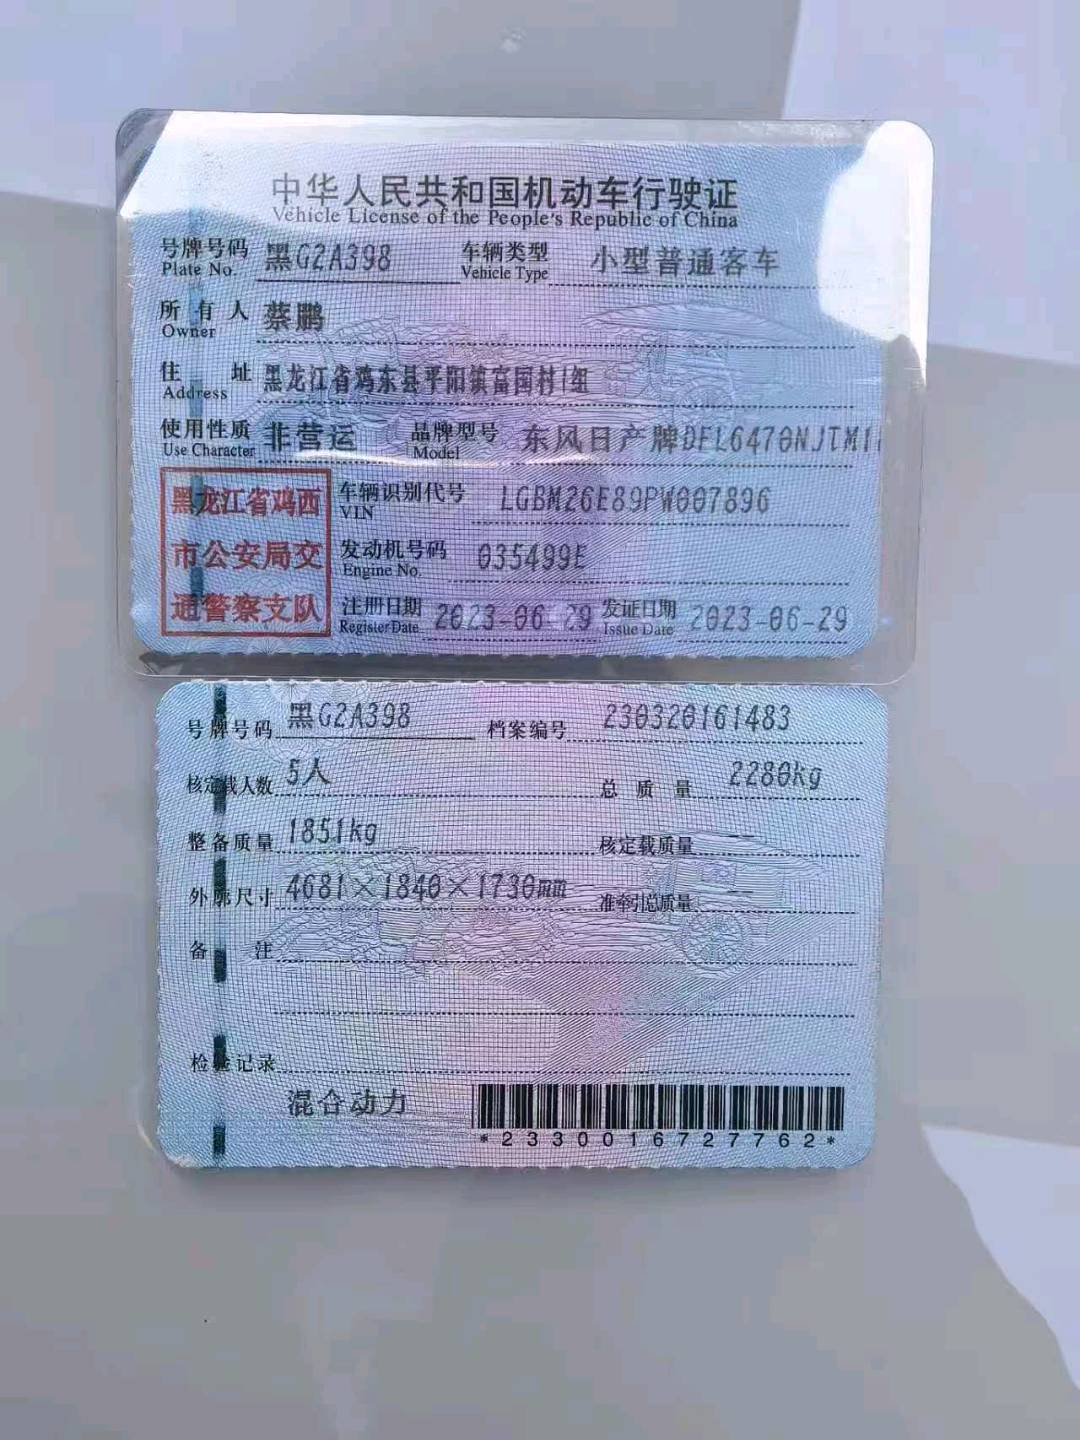 中华人民共和国机动车行驶证
Vehicle License of the People's Republic of China
号牌号码 黑G2A398 车辆类型 小型普通客车
Plate No. Vehicle Type
所有人 蔡鹏
Owner
住址 黑龙江省鸡东县平阳镇富国村1组
Address
使用性质 非营运 品牌型号 东风日产牌DFL6470NJTM1
Use Character Model
黑龙江省鸡西 车辆识别代号 LGBM26E89PW007896
VIN
市公安局交 发动机号码 035499E
Engine No.
通警察支队 注册日期 2023-06-29 发证日期 2023-06-29
Register Date Issue Date
号牌号码 黑G2A398 档案编号 230320161483
核定载人数 5人 总质量 2280kg
整备质量 1851kg 核定载质量 --
外廓尺寸 4681×1840×1730mm 准牵引总质量 --
备注
检验记录
混合动力
*2330016727762*